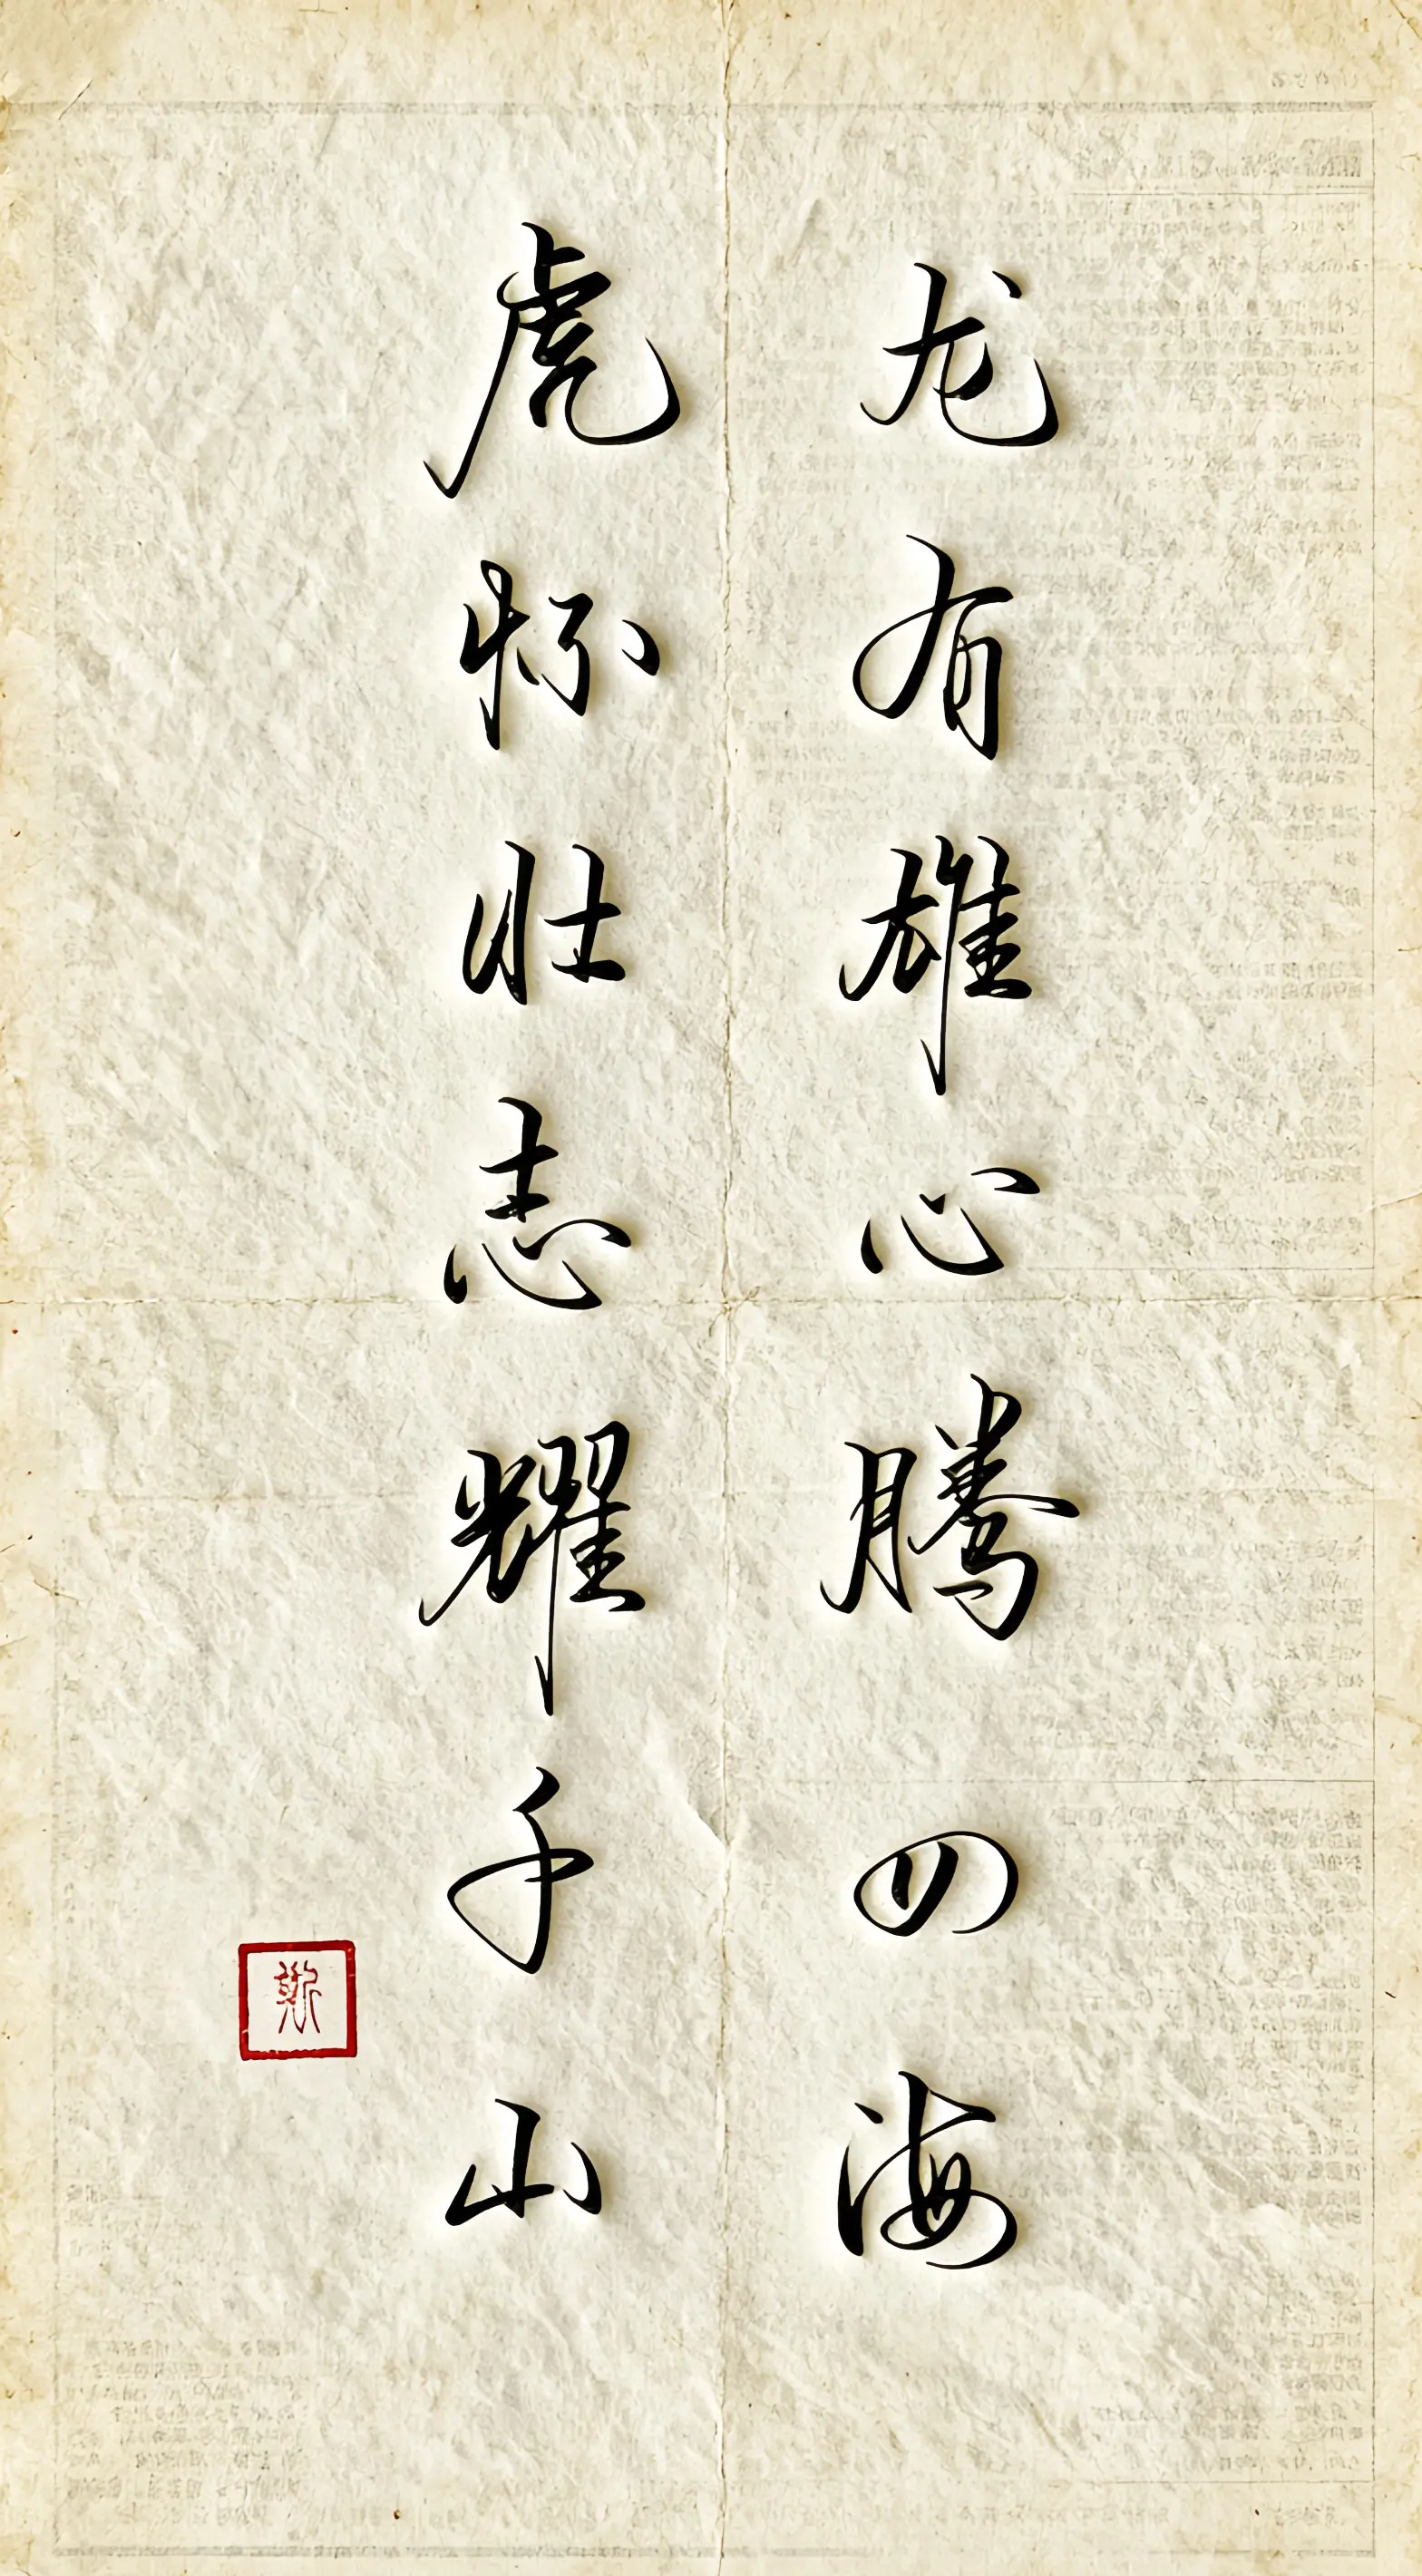 龙有雄心腾四海
虎怀壮志耀千山